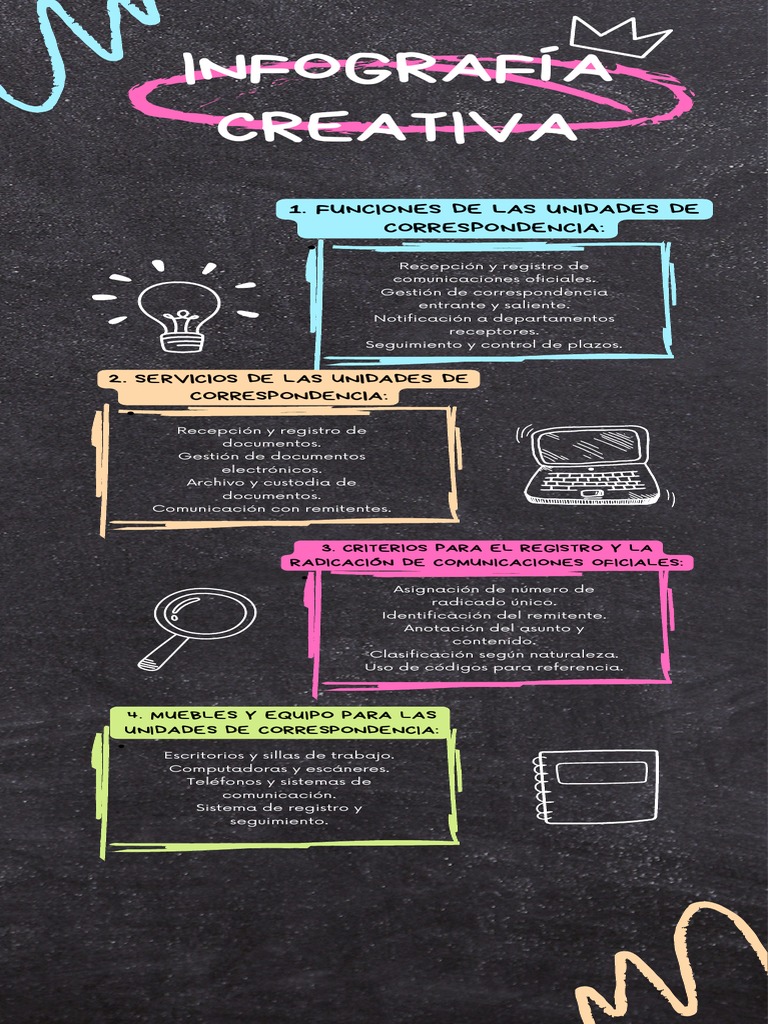 INFOGRAFÍA
CREATIVA
1. FUNCIONES DE LAS UNIDADES DE
CORRESPONDENCIA:
Recepción y registro de
comunicaciones oficiales.
Gestión de correspondencia
entrante y saliente.
Notificación a departamentos
receptores.
Seguimiento y control de plazos.
2. SERVICIOS DE LAS UNIDADES DE
CORRESPONDENCIA:
Recepción y registro de
documentos.
Gestión de documentos
electrónicos.
Archivo y custodia de
documentos.
Comunicación con remitentes.
3. CRITERIOS PARA EL REGISTRO Y LA
RADICACIÓN DE COMUNICACIONES OFICIALES:
Asignación de número de
radicado único.
Identificación del remitente.
Anotación del asunto y
contenido.
Clasificación según naturaleza.
Uso de códigos para referencia.
4. MUEBLES Y EQUIPO PARA LAS
UNIDADES DE CORRESPONDENCIA:
Escritorios y sillas de trabajo.
Computadoras y escáneres.
Teléfonos y sistemas de
comunicación.
Sistema de registro y
seguimiento.